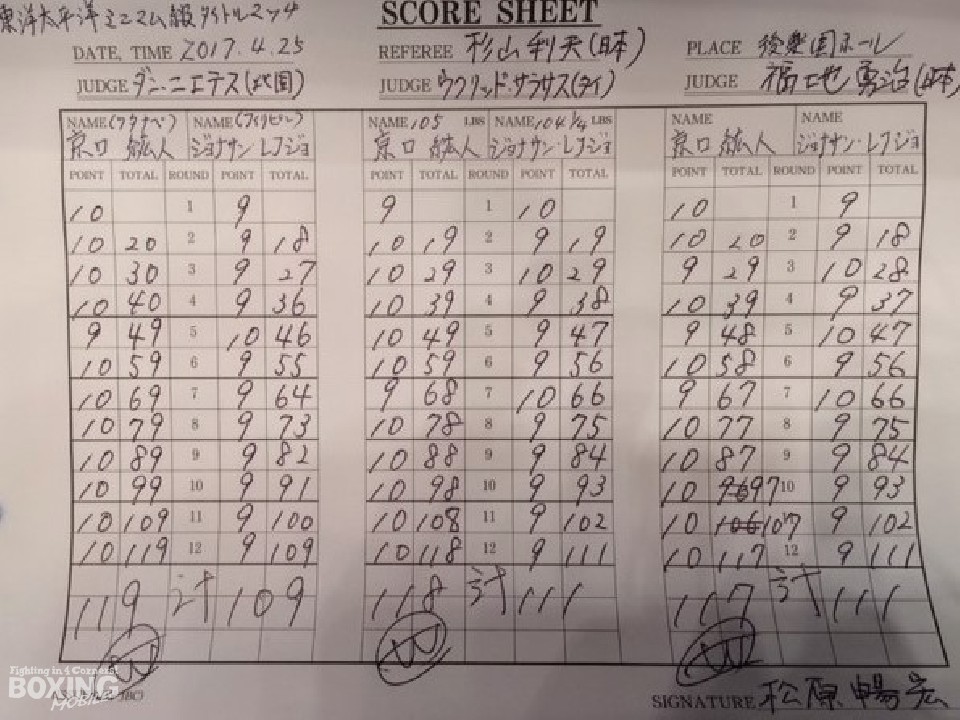 東洋太平洋ミニマム級タイトルマッチ
SCORE SHEET
DATE, TIME 2017.4.25 REFEREE 杉山利夫(日本) PLACE 後楽園ホール
JUDGE ダン・ニエテス(比国) JUDGE ウクリッド・サラサス(タイ) JUDGE 福地勇治(日本)
NAME (ワタナベ) NAME (フィリピン) NAME 105 LBS NAME 104 1/4 LBS NAME NAME
京口 紘人 ジョナサン・レフジョ 京口 紘人 ジョナサン・レフジョ 京口 紘人 ジョナサン・レフジョ
POINT TOTAL ROUND POINT TOTAL POINT TOTAL ROUND POINT TOTAL POINT TOTAL ROUND POINT TOTAL
10 1 9 9 1 10 10 1 9
10 20 2 9 18 10 19 2 9 19 10 20 2 9 18
10 30 3 9 27 10 29 3 10 29 9 29 3 10 28
10 40 4 9 36 10 39 4 9 38 10 39 4 9 37
9 49 5 10 46 10 49 5 9 47 9 48 5 10 47
10 59 6 9 55 10 59 6 9 56 10 58 6 9 56
10 69 7 9 64 9 68 7 10 66 9 67 7 10 66
10 79 8 9 73 10 78 8 9 75 10 77 8 9 75
10 89 9 9 82 10 88 9 9 84 10 87 9 9 84
10 99 10 9 91 10 98 10 9 93 10 97 10 9 93
10 109 11 9 100 10 108 11 9 102 10 107 11 9 102
10 119 12 9 109 10 118 12 9 111 10 117 12 9 111
119 計 109 118 計 111 117 計 111
W W W
Fighting in 4 Corners!
BOXING
MOBILE
SIGNATURE 松原 暢宏